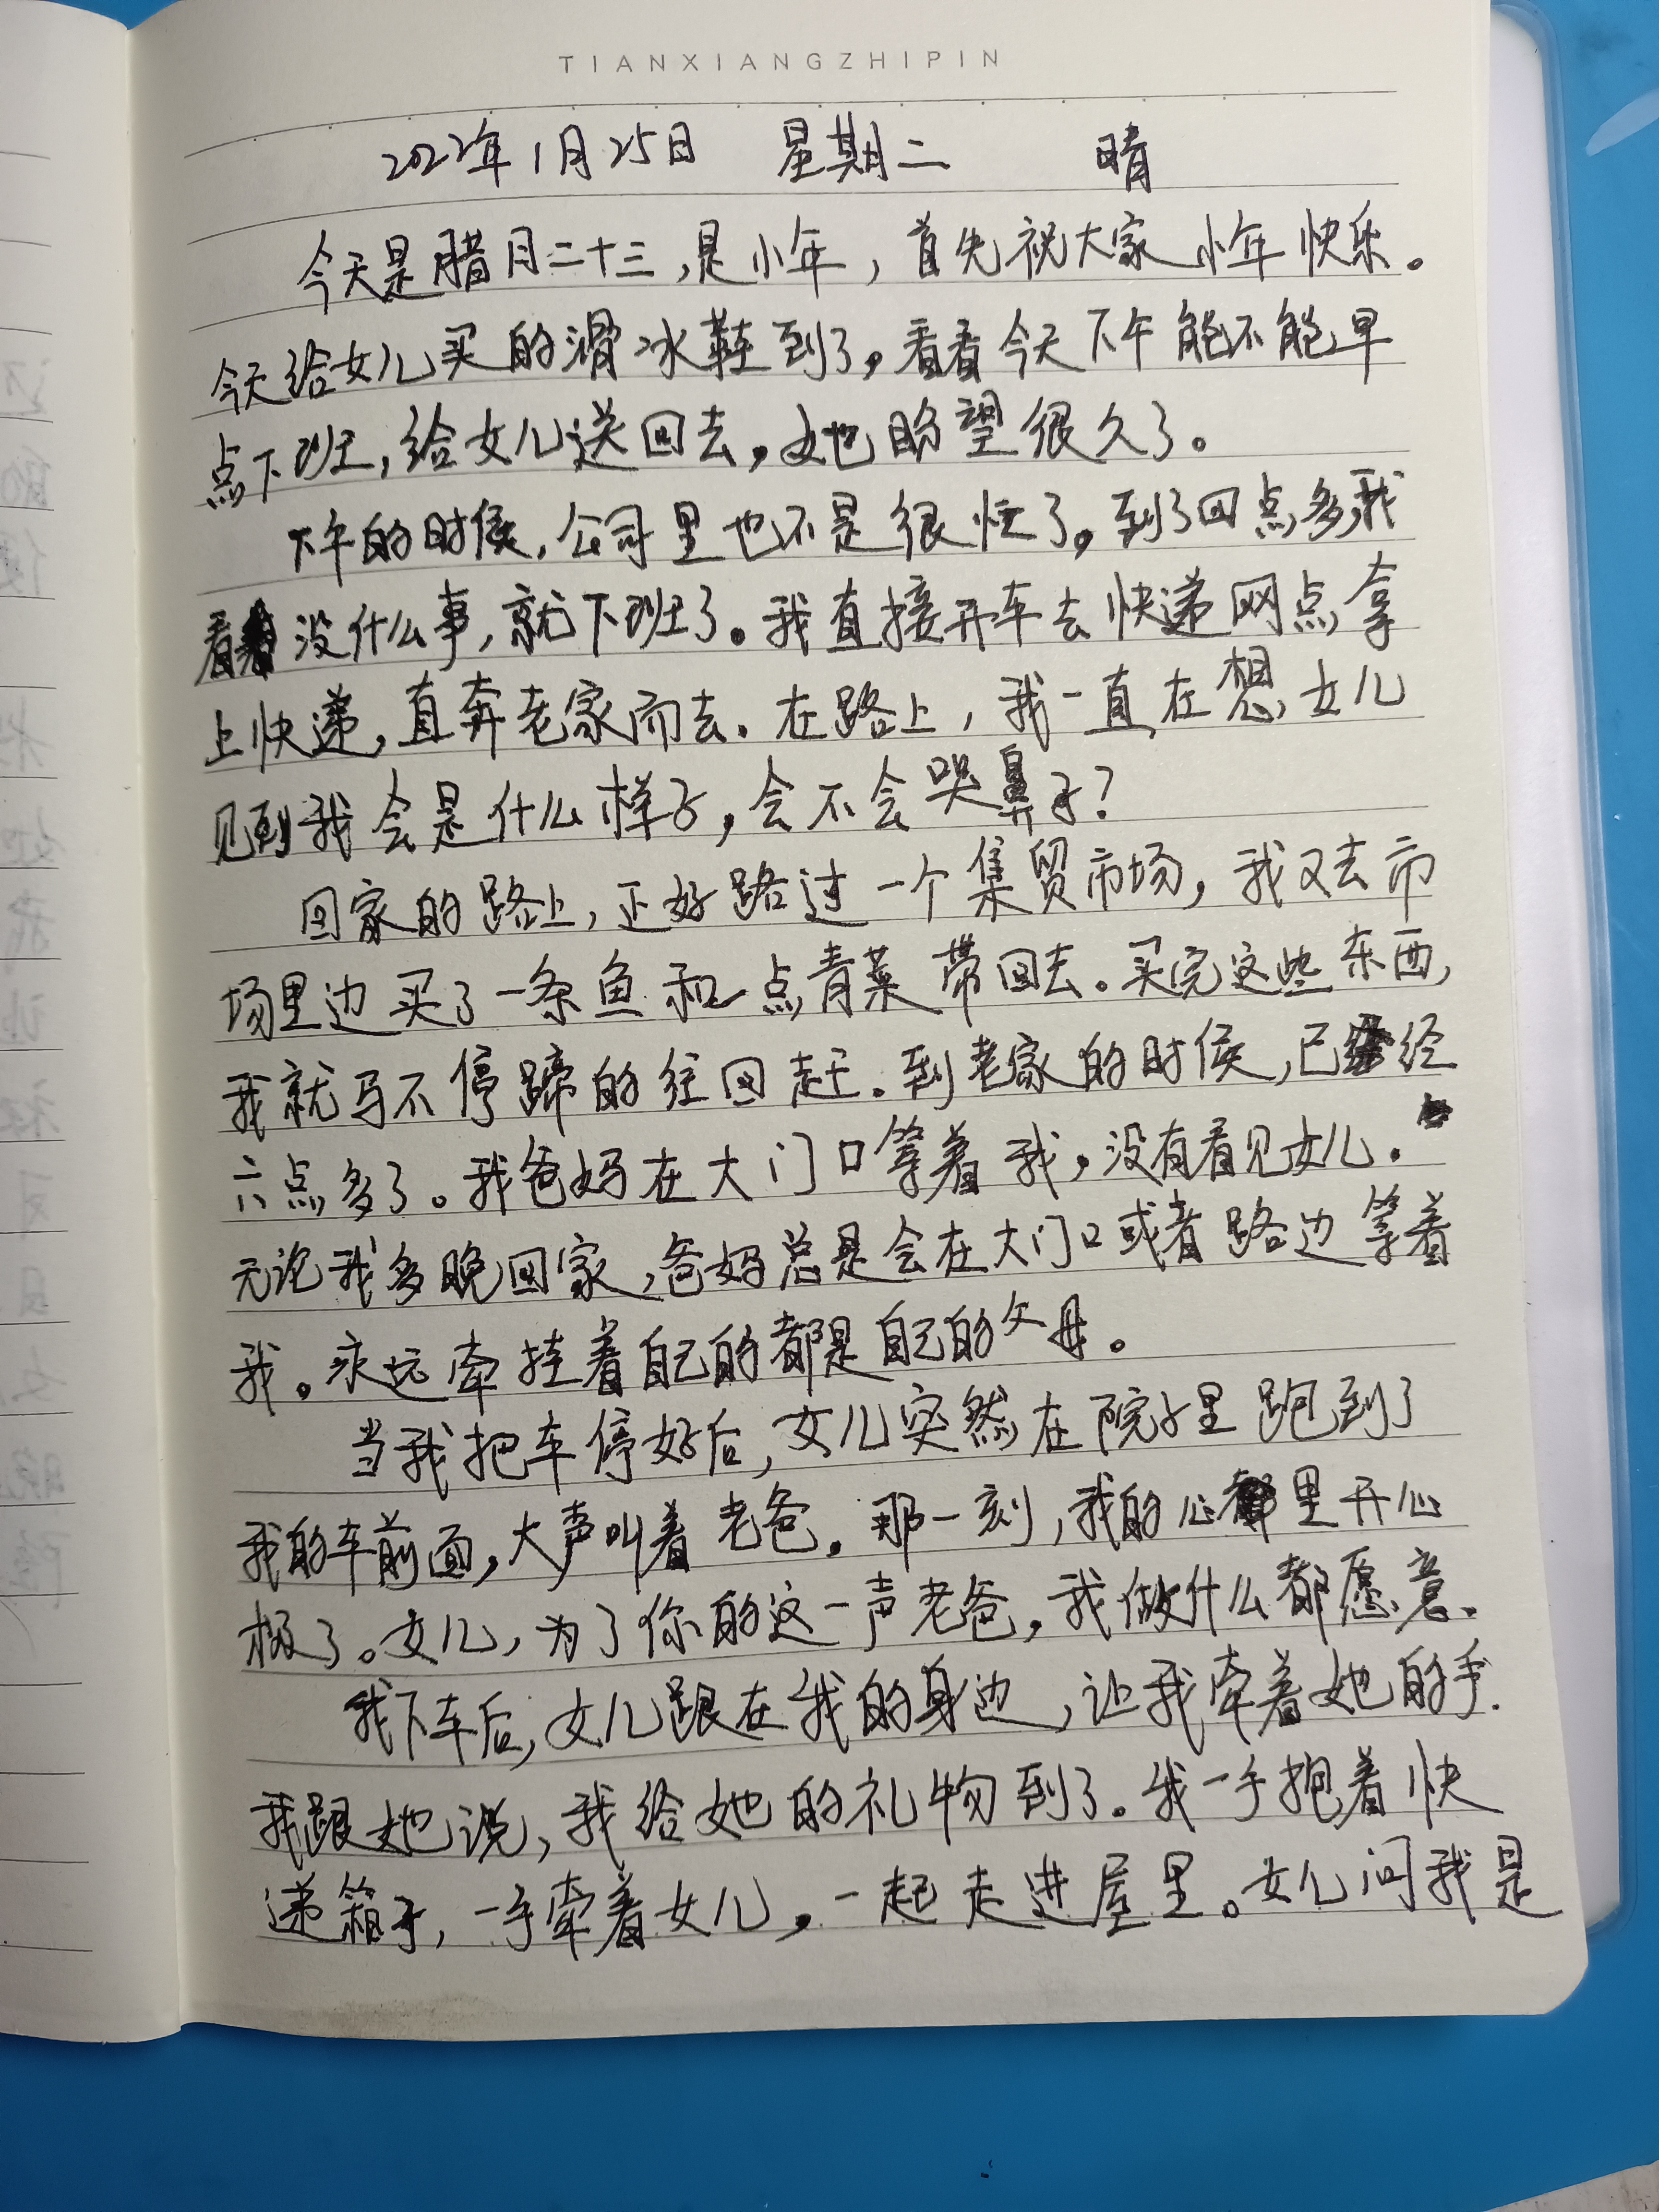 TIANXIANGZHIPIN
2022年1月25日 星期二 晴
今天是腊月二十三,是小年,首先祝大家小年快乐。
今天给女儿买的滑冰鞋到了,看看今天下午能不能早
点下班,给女儿送回去,她盼望很久了。
下午的时候,公司里也不是很忙了,到了四点多,我
看没什么事,就下班了。我直接开车去快递网点拿
上快递,直奔老家而去.在路上,我一直在想,女儿
见到我会是什么样子,会不会哭鼻子?
回家的路上,正好路过一个集贸市场,我又去市
场里边买了一条鱼和一点青菜带回去.买完这些东西,
我就马不停蹄的往回赶.到老家的时候,已经
六点多了。我爸妈在大门口等着我,没有看见女儿.
无论我多晚回家,爸妈总是会在大门口或者路边等着
我。永远牵挂着自己的都是自己的父母。
当我把车停好后,女儿突然在院子里跑到了
我的车前面,大声叫着老爸.那一刻,我的心里开心
极了。女儿,为了你的这一声老爸,我做什么都愿意.
我下车后,女儿跟在我的身边,让我牵着她的手.
我跟她说,我给她的礼物到了。我一手抱着快
递箱子,一手牵着女儿,一起走进屋里。女儿问我是